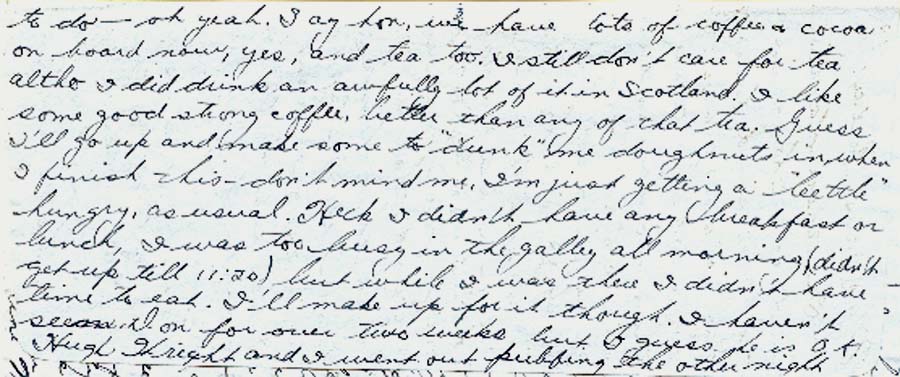 to do — oh yeah. I ay hon, we have lots of coffee & cocoa
on board now, yes, and tea too. I still don't care for tea
altho I did drink an awfully lot of it in Scotland. I like
some good strong coffee, better than any of that tea. Guess
I'll go up and make some to "dunk" me doughnuts in when
I finish this — don't mind me, I'm just getting a "leetle"
hungry, as usual. Heck I didn't have any breakfast or
lunch, I was too busy in the galley all morning (didn't
get up till 11:20) but while I was there I didn't have
time to eat. I'll make up for it though. I haven't
seen on for over two weeks but I guess he is O.K.
Hugh and I went out pubbing the other night